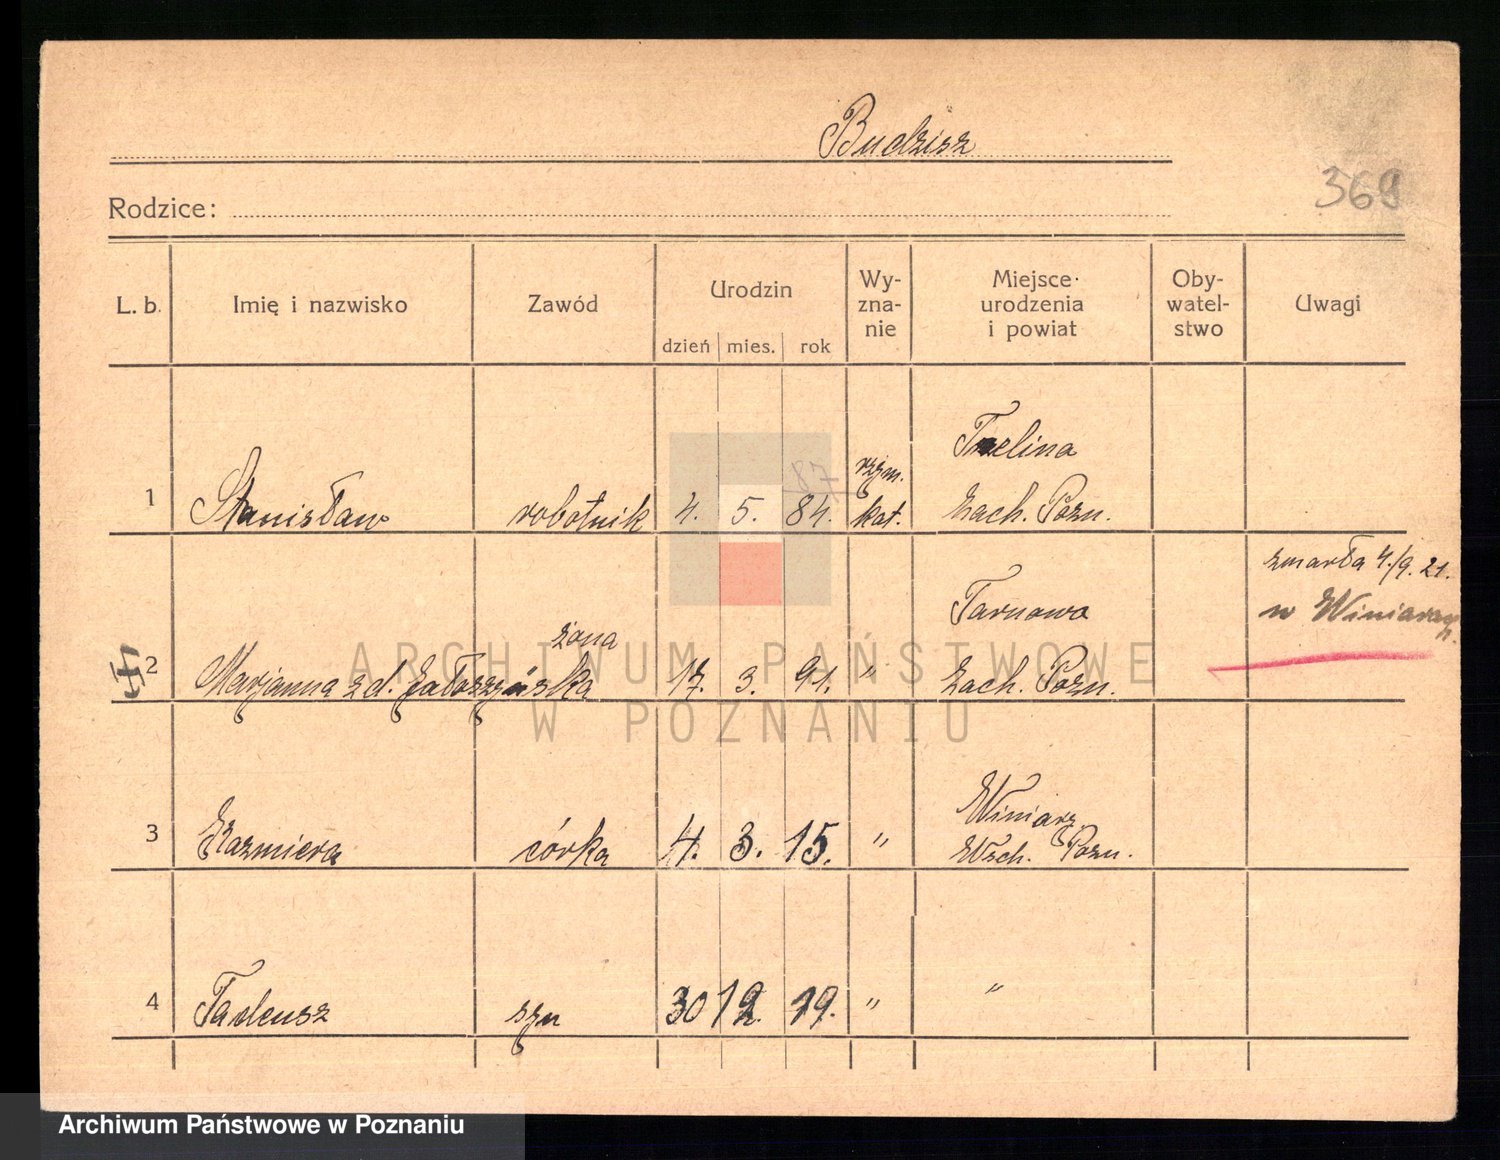 Budzisz
369
Rodzice:
L. b. Imię i nazwisko Zawód Urodzin dzień mies. rok Wy-zna-nie Miejsce urodzenia i powiat Oby-watel-stwo Uwagi
87
1 Stanisław robotnik 4. 5. 84. rzym. kat. Zach. Pozn.
zmarła 4/9. 21.
w Winiarach.
żona
2 Marjanna z d. 17. 3. 91. " Tarnowo Zach. Pozn.
3 Kazmiera córka 4. 3. 15. " Winiary Wsch. Pozn.
4 Tadeusz syn 30 12. 19. " "
ARCHIWUM PAŃSTWOWE
W POZNANIU
Archiwum Państwowe w Poznaniu